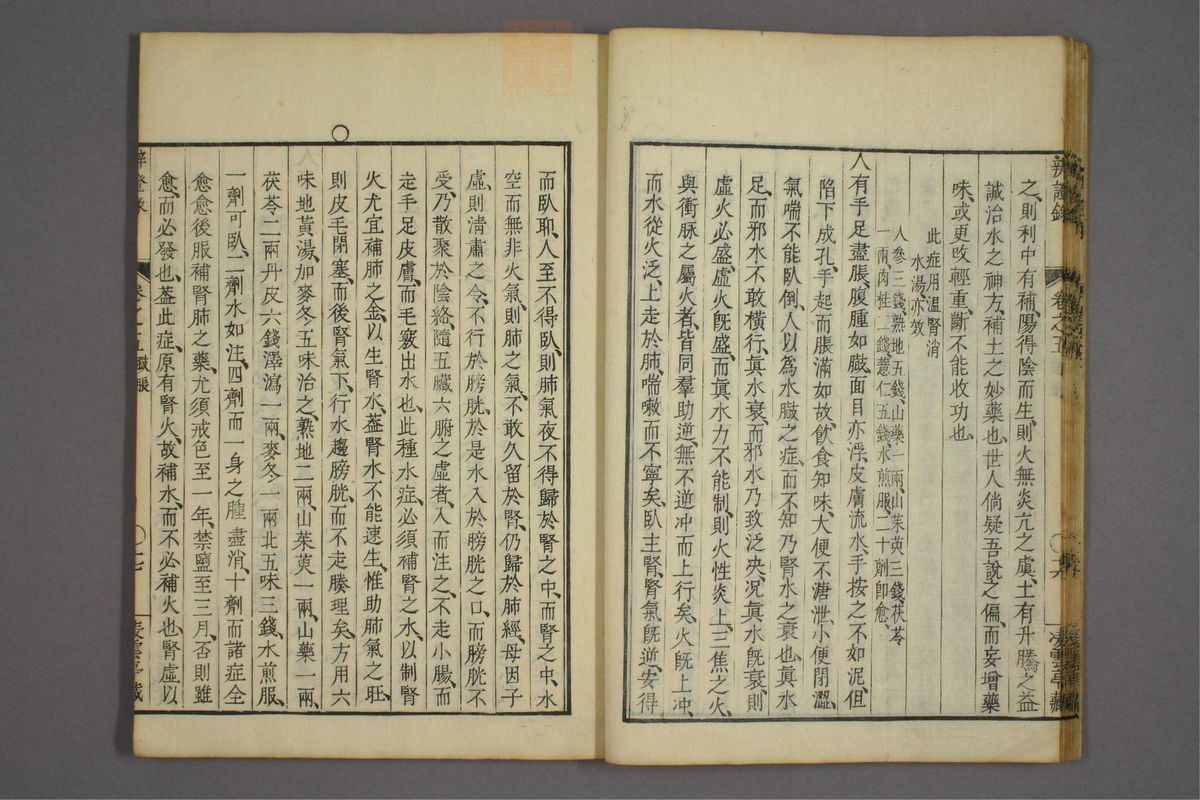 之則利中有補陽得陰而生則火無炎亢之虞土有升騰之益
誠治水之神方補土之妙藥也世人倘疑吾說之偏而妄增藥
味或更改輕重斷不能收功也
此症用溫腎消
水湯亦效
人參三錢熟地五錢山藥一兩山茱萸三錢茯苓
一兩肉桂二錢薏仁五錢水煎服二十劑即愈
人有手足盡脹腹腫如臌面目亦浮皮膚流水手按之不如泥但
陷下成孔手起而脹滿如故飲食知味大便不溏泄小便閉澀
氣喘不能臥倒人以爲水臌之症而不知乃腎水之衰也眞水
足而邪水不敢橫行眞水衰而邪水乃致泛決況眞水旣衰則
虛火必盛虛火旣盛而眞水力不能制則火性炎上三焦之火
與衝脉之屬火者皆同羣助逆無不逆冲而上行矣火旣上冲
而水從火泛上走於肺喘嗽而不寧矣臥主腎腎氣旣逆安得
辨證錄
卷之五
凌雲亭藏
而臥耶人至不得臥則肺氣夜不得歸於腎之中而腎之中水
空而無非火氣則肺之氣不敢久留於腎仍歸於肺經母因子
虛則淸肅之令不行於膀胱於是水入於膀胱之口而膀胱不
受乃散聚於陰絡隨五臟六腑之虛者入而注之不走小腸而
走手足皮膚而毛竅出水也此種水症必須補腎之水以制腎
火尤宜補肺之金以生腎水葢腎水不能速生惟助肺氣之旺
則皮毛閉塞而後腎氣下行水趨膀胱而不走腠理矣方用六
味地黃湯加麥冬五味治之熟地二兩山茱萸一兩山藥一兩
茯苓二兩丹皮六錢澤瀉一兩麥冬一兩北五味三錢水煎服
一劑可臥二劑水如注四劑而一身之腫盡消十劑而諸症全
愈愈後服補腎肺之藥尤須戒色至一年禁鹽至三月否則雖
愈而必發也葢此症原有腎火故補水而不必補火也腎虛以
卷之五